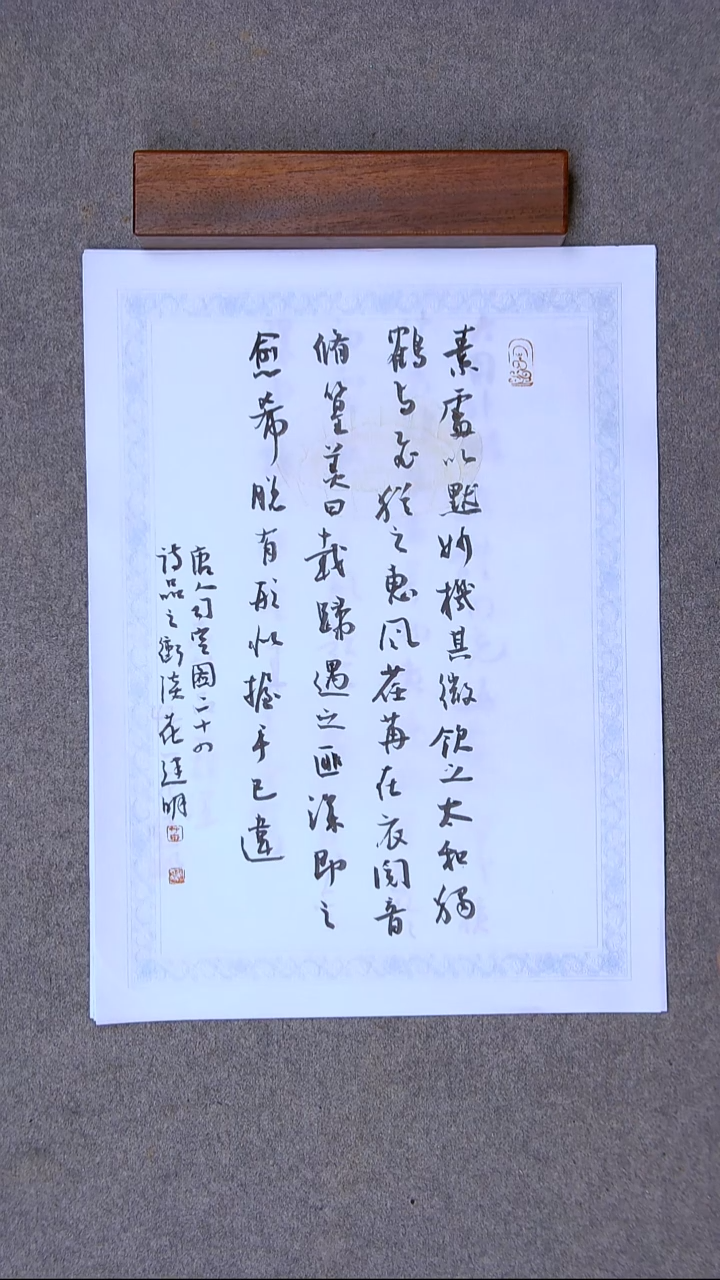 素處以默妙機其微飲之太和獨
鶴与飛猶之惠风荏苒在衣閱音
脩篁美曰載歸遇之匪深即之
愈希脱有形似握手已違
唐人司空圖二十四
诗品之衝淡 明